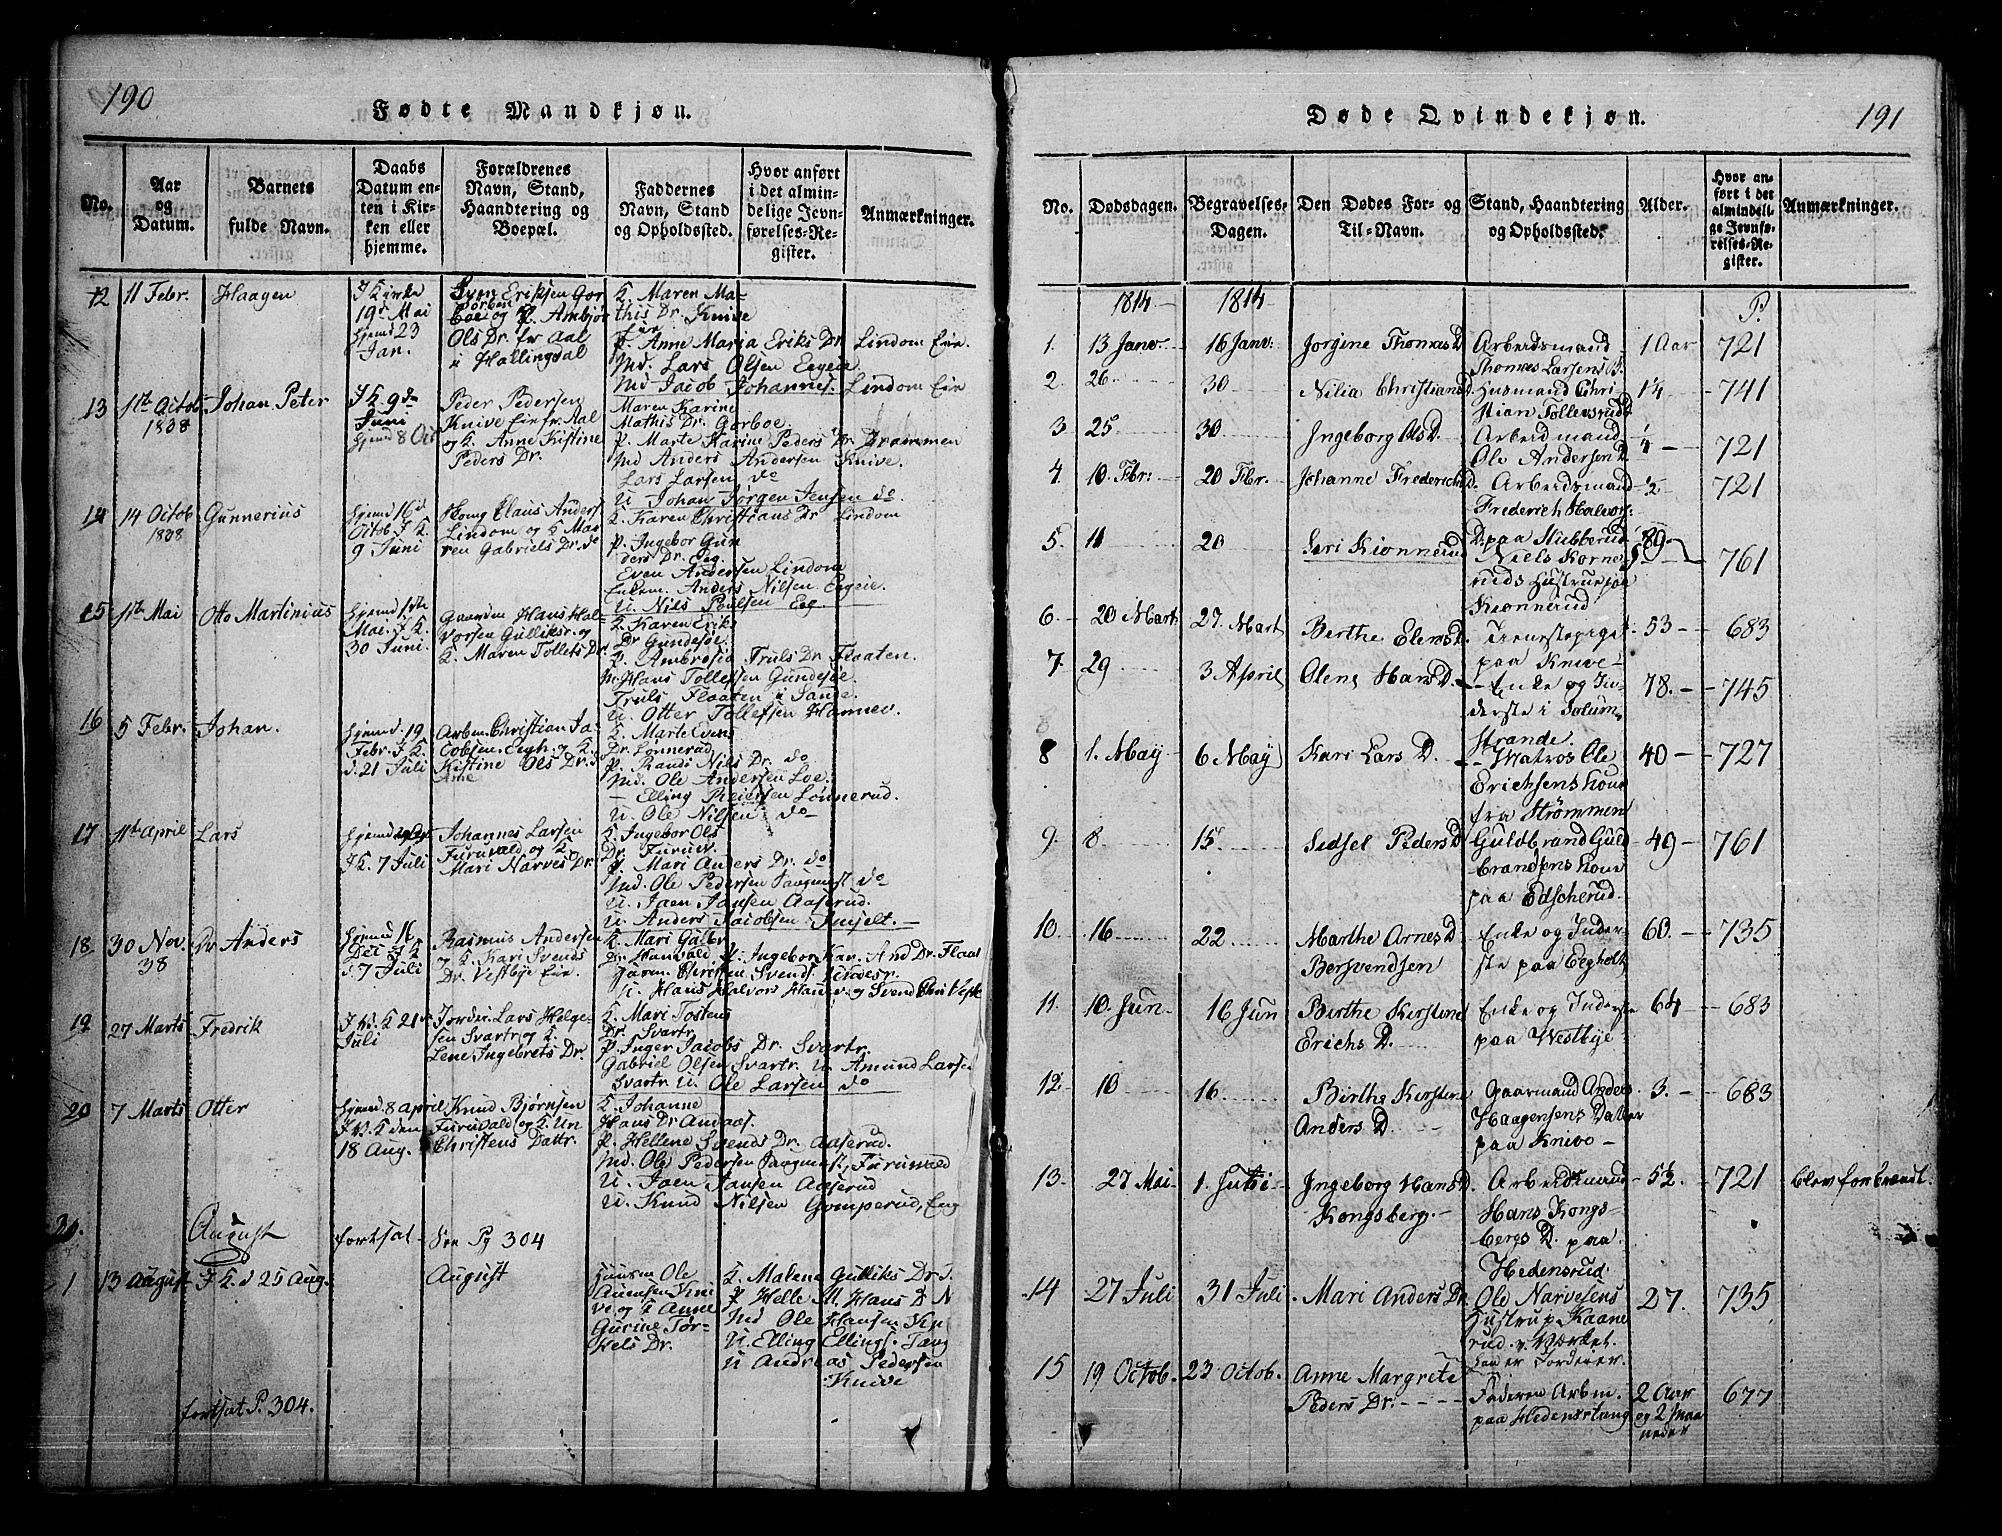 190
Fødte Mandkjøn.
No.
Aar
og
Datum.
Barnets
fulde Navn.
Daabs
Datum en-
ten i Kir-
ken eller
hjemme.
Forældrenes
Navn, Stand,
Haandtering og
Boepæl.
Faddernes
Navn, Stand
og Opholdssted.
Hvor anført
i det almin-
delige Jevn-
førelses-Re-
gister.
Anmærkninger.
12 11 Febr. Haagen
I Kirke
19d Mai
hjemd 23
Jan.
Sven Eriksen Gor
boe og K. Ambjør
Ols Dr. fr Aal
i Hallingdal
K. Maren Ma-
this Dr. Knive
P. Anne Maria Eriks Dr. Lindom Eie.
Md. Lars Olsen Eegeie
Md Jacob Johannes. Lindom Eie
13 11te Octob 1838 Johan Peter
I K. 9de
Juni
hjemd 8 Oct
Peder Pedersen
Knive Eie fr. Aal
og K. Anne Kistine
Peders Dr.
Maren Karine
Mathis Dr. Gorboe
P. Marte Karine Peders Dr. Drammen
Md Anders Andersen Knive.
Lars Larsen do
U. Johan Jørgen Jensen do.
14 14 Octob 1838 Gunnerius
hjemd 16d
Octob I K.
9 Juni
Skomg Claus Anders
Lindom og K. Ma-
ren Gabriels Dr. do
K. Karen Christians Dr Lindom
P. Ingebor Gun
ders Dr. Eeg
Even Andersen Lindom
Enkem. Anders Nilsen Eegeie
U. Nils Poulsen Eeg.
15 11te Mai Otto Martinius
hjemd 14te
Mai. I K.
30 Juni
Gaardm Hans Hal-
vorsen Gulliksr. og
K. Maren Tollefs Dr
K. Karen Eriks
Dr Gundesøe
P. Ambrosia Truls Dr Flaaten.
M. Hans Tollefsen Gundesøe
Truls Flaaten i Sande.
U. Otter Tollefsen Hannev.
16 5 Febr. Johan.
hjemd 19
Febr. I K.
d. 21 Juli
Arbm. Christian Ja-
cobsen Eegh. og K.
Kistine Ols Dr.
K. Marte Evens
Dr. Lønnerud
P. Randi Nils Dr. do
Md. Ole Andersen Loe.
— Elling Pedersen Lønnerud.
U. Ole Nilsen do
17 11te April Lars
I K. 7 Juli
Johannes Larsen
Furuvald og K.
Mari Narves Dr.
K. Ingebor Ols
Dr. Furuv.
P. Mari Anders Dr. do
Md. Ole Pedersen Saugmst do
U. Jaen Jansen Aaserud.
U. Anders Jacobsen Smjelt.
18 30 Nov. 38 Anders
hjemd 16
Dec I K
d. 7 Juli
Rasmus Andersen
og K. Kari Svends
Dr. Vestbye Eie.
K. Mari Gulbr
Dr. Hanvald P. Ingebor Kar. And Dr. Flaat
U. Hans Halvors Hannev og Svend Chri Vestb
19 27 Marts Fredrik
21
Juli
Inder. Lars Helge-
sen Svartr og K.
Lene Ingebrets Dr.
K. Mari Tostens
Dr. Svartr
P. Inger Jacobs Dr. Svartr.
Gabriel Olsen Svartr U. Amund Larsen
Svartr U. Ole Larsen do
20 7 Marts Otter
hjemd 8 april
K den
18 Aug.
Knud Bjørnsen
Furuvald og K. Un
Christens Dattr.
K. Johanne
Hans Dr Andaas.
P. Hellene Svends Dr. Aaserud.
Md. Ole Pedersen Saugmst, Furuvald
U. Jaen Jansen Aaserud
U. Knud Nilsen Gomperud, Eng
August fortsat See Pg 304
1 13 August I K. d 25 Aug. August
Ole
Knive og K Anne
Gurine Tør-
kels Dr.
K. Malene Gulliks Dr
P Helle M. Hans D
Md Ole Hansen Kn
U. Elling Ellings. Tang
U Andreas Pedersen
Knive
fortsat P. 304.
191
Døde Qvindekjøn.
No.
Dødsdagen.
Begravelses-
Dagen.
Den Dødes For- og
Til-Navn.
Stand, Haandtering
og Opholdssted.
Alder.
Hvor an-
ført i det
almindeli-
ge Jevnfø-
relses-Re-
gister.
Anmærkninger.
1814 1814 P.
1. 13 Janv 16 Janv: Jorgine Thomas D Arbeidsmand
Thomas Larsens D. 1 Aar 721
2. 26 30 Nilia Christians D. Husmand Chri
stian Tollefsrud 1/4 741
3 25 30 Ingeborg Ols D. Arbeidmand
Ole Andersen D 1/4 721
4. 10 Fbr: 20 Fbr. Johanne Frederichs D. Arbeidsmand
Frederich Halvors.
D. paa Stubberud 1/2 721
5. 11 20 Siri Kionnerud Niels Korne
ruds Hustrue paa
Kionnerud 89 761
6. 20 Mart 27 Mart Berthe Elens D. Tienestepige
paa Knive 53 683
7. 29 3 April Olene Hans D. Enke og In-
derste i Solum
strande. 78. 745
8 1. May 6 May Kari Lars D. Matros Ole
Erichsens Kone
fra Strømmen 40 727
9. 8 15 Sidsel Peders D Guldbrand Guld
brandsens Kone
paa Edscherud. 49 761
10. 16 22 Marthe Arnes D
Borsvendsen Enke og Inder-
ste paa Eegholt 60. 735
11. 10 Jun 16 Jun Birthe Kirstine
Erichs D. Enke og Inderste
paa Westbye 64 683
12 10 16. Birthe Kirstine
Anders D. Gaarmand Anders
Haagensens Datter
paa Knive 3. 683
13. 27 Mai 1. Juni Ingeborg Hans D.
Kongsberg. Arbeidsmand
Hans Kongs-
bergs D. paa
Hedensrud 5 1/2. 721 blev forbrændt.
14 27 Juli 31 Juli Mari Anders Dr Ole Narvesens
Hustrue Kaane
rud v. Værket. 27. 735
15 19 Octob. 23 Octob. Anne Margrete
Peders Dr. Faderen Arbm.
paa Hedenstang 2 Aar
og 2 Maa
neder 677